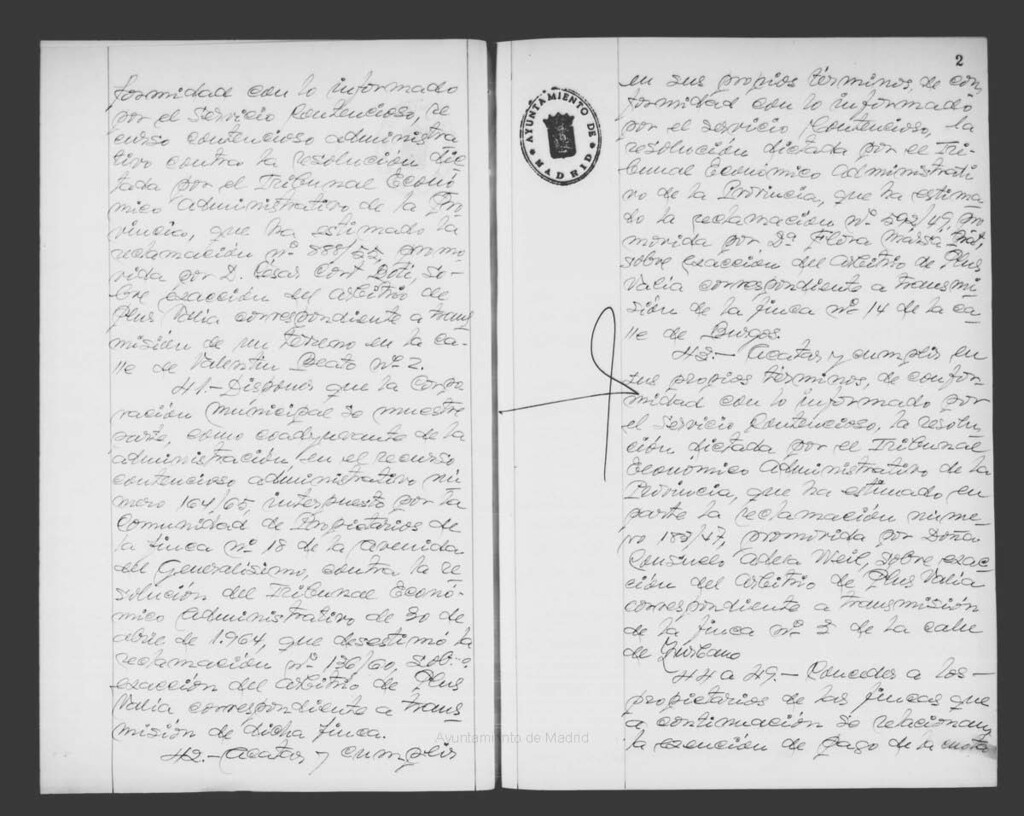 formidad con lo informado
por el Servicio Contencioso, re
curso contencioso administra
tivo contra la resolución dic
tada por el Tribunal Econó
mico Administrativo de la Pro
vincia, que ha estimado la
reclamación nº 888/55, promo
vida por D. César Cort Botí, so-
bre exacción del arbitrio de
Plus Valia correspondiente a trans
misión de un terreno en la ca-
lle de Valentín Beato nº 2.
41.- Disponer que la Corpo
ración municipal se muestre
parte, como coadyuvante de la
administración, en el recurso
contencioso administrativo nú
mero 164/65, interpuesto por la
Comunidad de Propietarios de
la finca nº 18 de la avenida
del Generalísimo, contra la re
solución del Tribunal Econó-
mico Administrativo de 30 de
abril de 1.964, que desestimó la
reclamación nº 136/60, sobre
exacción del arbitrio de Plus
Valia correspondiente a trans
misión de dicha finca.
42.- Acatar y cumplir
2
AYUNTAMIENTO DE MADRID
en sus propios términos, de con
formidad con lo informado
por el Servicio Contencioso, la
resolución dictada por el Tri-
bunal Económico Administrati
vo de la Provincia, que ha estima
do la reclamación nº 592/49, pro
movida por Dª Flora Marsa
sobre exacción del arbitrio de Plus
Valia correspondiente a transmi
sión de la finca nº 14 de la ca-
lle de Burgos.
43.- Acatar y cumplir en
sus propios términos, de confor
midad con lo informado por
el Servicio Contencioso, la resolu
ción dictada por el Tribunal
Económico Administrativo de la
Provincia, que ha estimado en
parte la reclamación núme-
ro 188/47, promovida por Doña
Consuelo Adela Weil, sobre exac
ción del arbitrio de Plus Valia
correspondiente a transmisión
de la finca nº 3 de la calle
de Zurbano
44 a 49.- Conceder a los
propietarios de las fincas que
a continuación se relacionan,
la exención de pago de la cuota
Ayuntamiento de Madrid